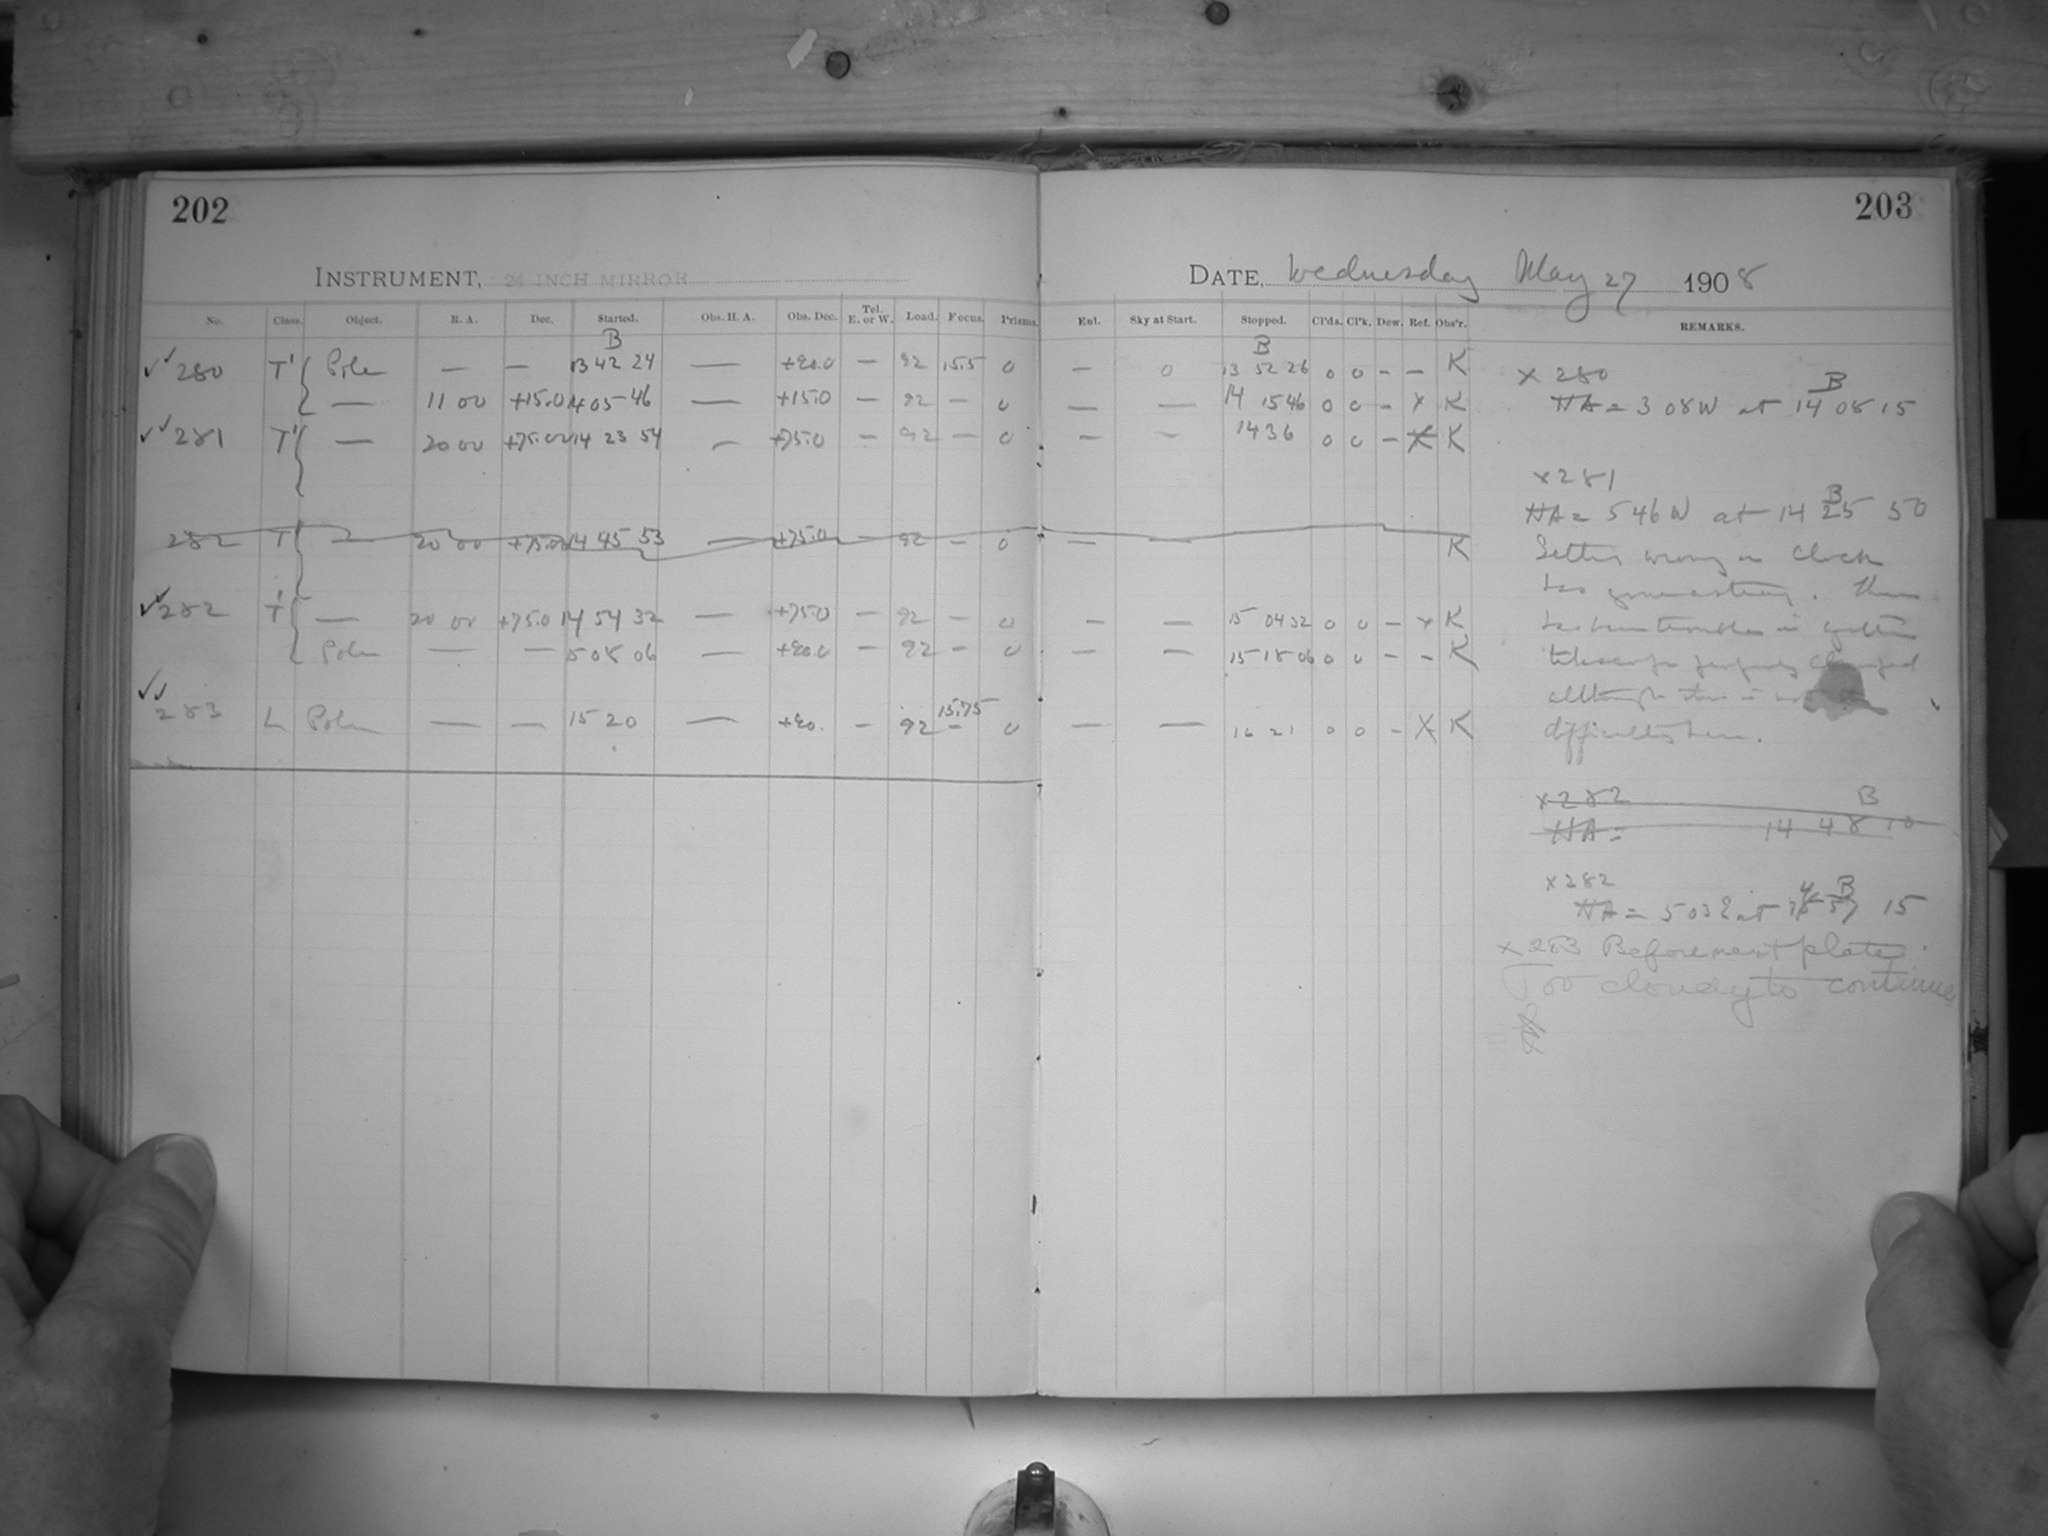 202
INSTRUMENT, 24 INCH MIRROR
No. Class. Object. R. A. Dec. Started. Obs. H. A. Obs. Dec. Tel. E. or W. Load. Focus. Prisms.
B
✓✓ 280 T' Pole — — 13 42 24 — +90.0 — 92 15.5 0
— 11 00 +15.0 14 05 46 — +15.0 — 92 — 0
✓✓ 281 T' — 20 00 +75.0 14 23 54 — +75.0 — 92 — 0
282 T' — 20 00 +75.0 14 45 53 — +75.0 — 92 — 0
✓✓ 282 T' — 20 00 +75.0 14 54 32 — +75.0 — 92 — 0
Pole — — 15 08 06 — +90.0 — 92 — 0
✓✓ 283 L Pole — — 15 20 — +90. — 92 15.75 — 0
203
DATE, Wednesday May 27 1908
Enl. Sky at Start. Stopped. Cl'ds. Cl'k. Dew. Ref. Obs'r. REMARKS.
B
— 0 13 52 26 0 0 - - K
— — 14 15 46 0 0 - x K
— — 14 36 0 0 - x K
— — K
— — 15 04 32 0 0 - x K
— — 15 18 06 0 0 - - K
— — 16 21 0 0 - X K
x 280
B
HA = 3 08 W at 14 08 15
x 281
B
HA = 5 46 W at 14 25 50
Setting wrong or clock
has gone
has been trouble in getting
telescope
although this is
difficulties here.
x 282 B
HA = 14 48 10
x 282
B
HA = 5 03 E at 57 15
x 283 Before next plate
Too cloudy to continue